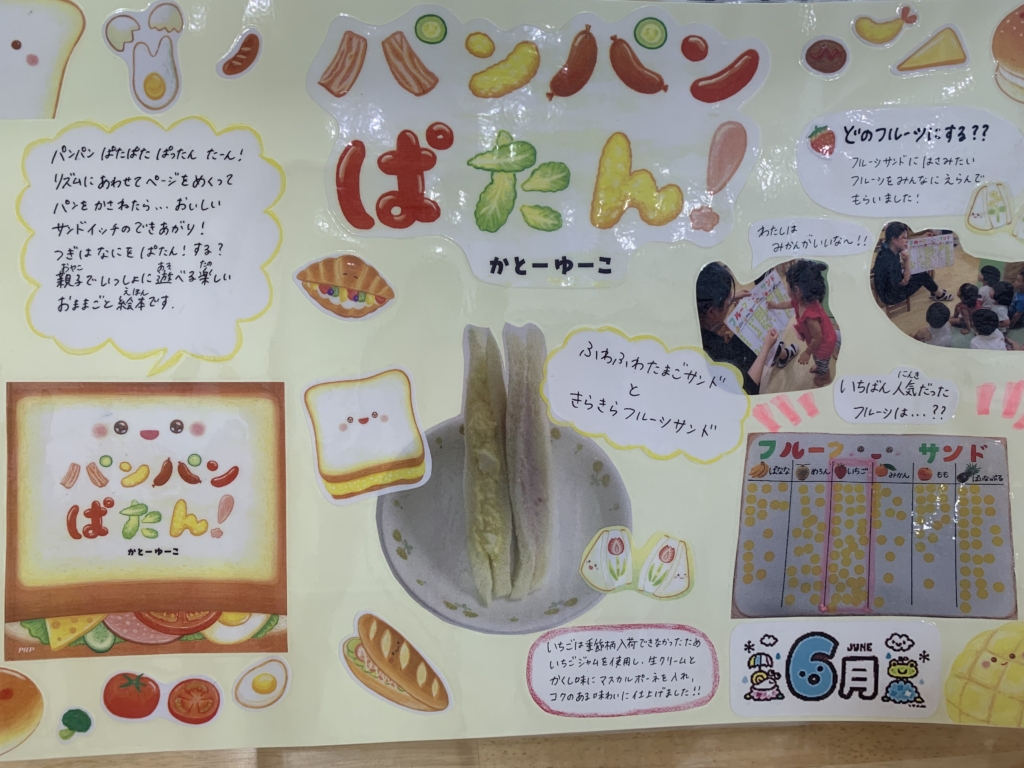 パンパン
ぱたん!
かとーゆーこ
パンパン ぱたぱた ぱったん たーん!
リズムにあわせてページをめくって
パンをかさねたら... おいしい
サンドイッチのできあがり!
つぎは なにを ぱたん! する?
親子でいっしょに遊べる楽しい
おやこ あそ たの
おままごと絵本です.
えほん
どのフルーツにする??
フルーツサンドに はさみたい
フルーツをみんなに えらんで
もらいました!
わたしは
みかんがいいな〜!!
ふわふわたまごサンド
と
きらきらフルーツサンド
にんき
いちばん人気だった
フルーツは...??
パンパン
ぱたん!
かとーゆーこ
PHP
フルーツ サンド
ばなな めろん いちご みかん もも ぱいなっぷる
いちごは季節柄入荷できなかったため
いちごジャムを使用し、生クリームと
かくし味に マスカルポーネを入れ、
コクのある味わいに仕上げました!!
JUNE
6月